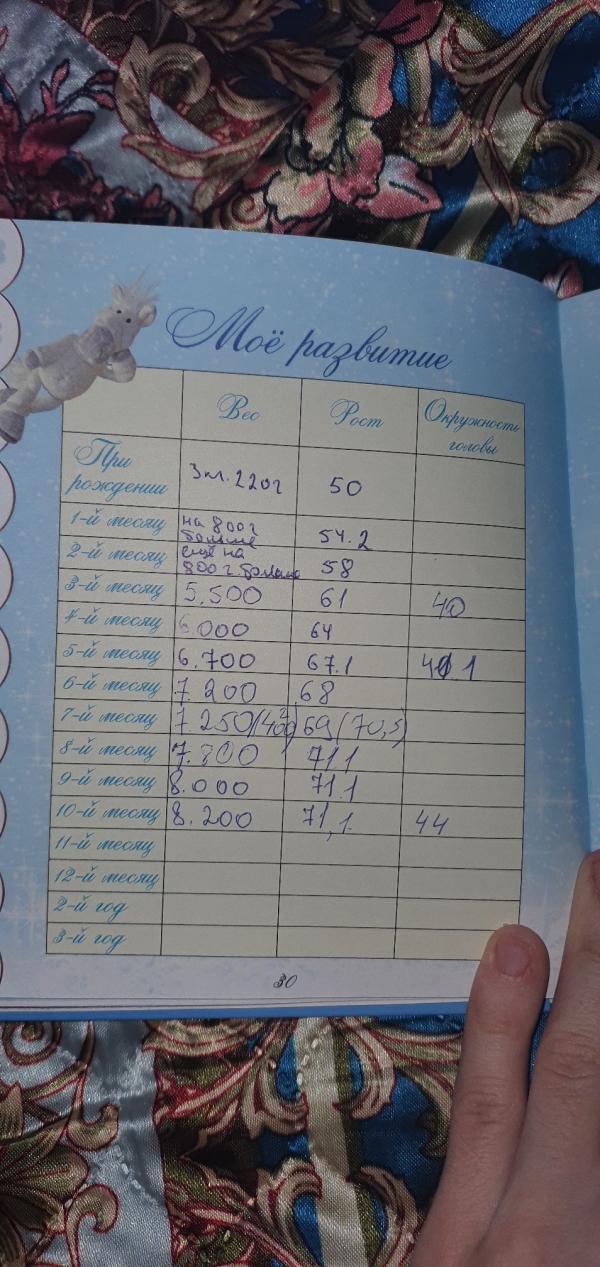 Моё развитие
Вес Рост Окружность головы
При рождении 3кг. 220г 50
1-й месяц на 800г больше 54.2
2-й месяц ещё на 800г больше 58
3-й месяц 5.500 61 40
4-й месяц 6.000 64
5-й месяц 6.700 67.1 41
6-й месяц 7.200 68
7-й месяц 7.250 (400) 69 (70,5)
8-й месяц 7.800 71.1
9-й месяц 8.000 71.1
10-й месяц 8.200 71,1. 44
11-й месяц
12-й месяц
2-й год
3-й год
30